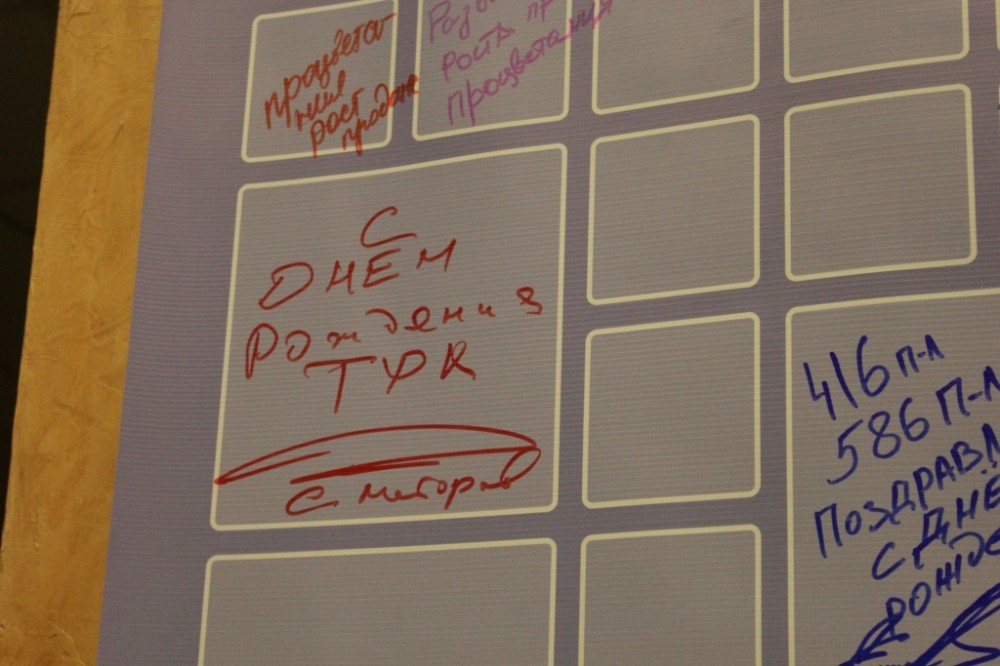 процвета-
ния
рост
продаж
Рост
процветания
С
ДНЕМ
Рождения
ТФК
416 П-Л
586 П-Л
ПОЗДРАВЛ
С ДНЁ
рожде